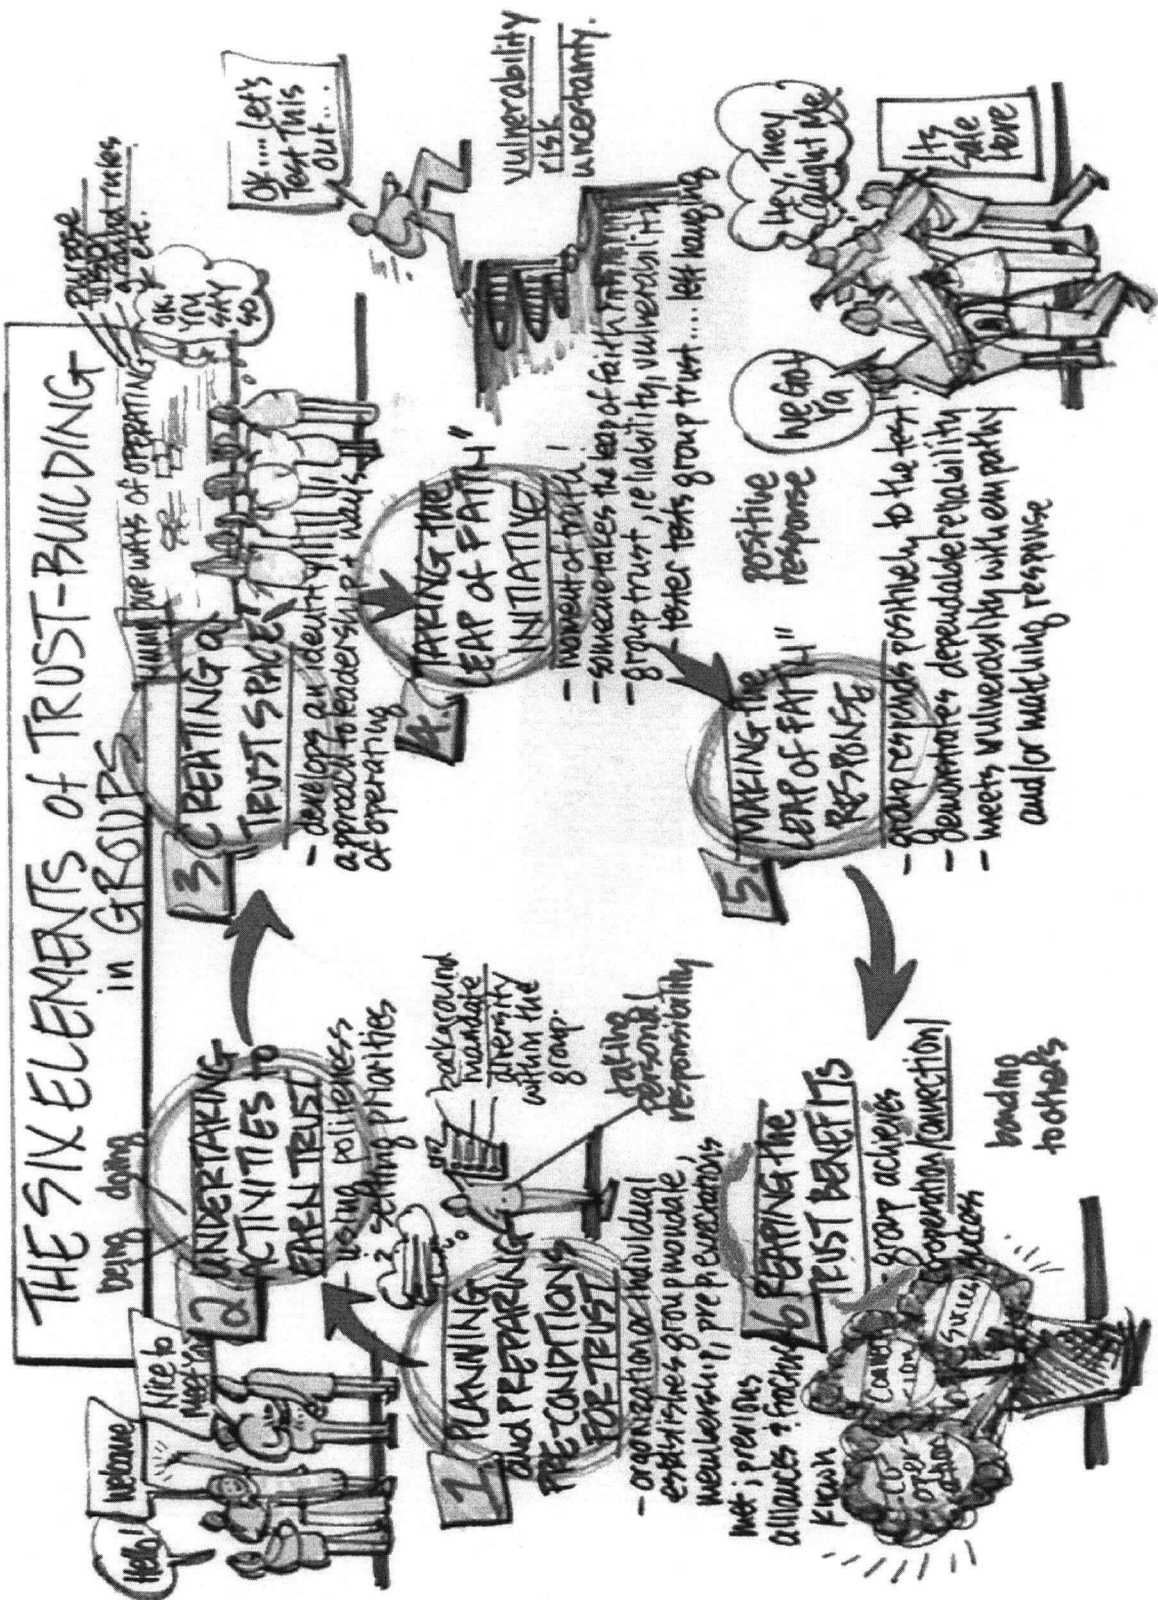 THE SIX ELEMENTS of TRUST-BUILDING
in GROUPS
Hello!
Welcome
Nice to
Meet You
1
PLANNING
and PREPARING
PRE-CONDITIONS
FOR TRUST
- organization or individual
establishes group mandate,
membership; pre-
met; previous
alliances & fractions
known
background
mandate
diversity
within the
group.
taking
personal
responsibility
being doing
2
UNDERTAKING
ACTIVITIES TO
EARN TRUST
- using politeness
- setting priorities
3
CREATING a
TRUST SPACE
- develops an identity
approach to leadership & ways
of operating
our ways of OPERATING
purpose
ground rules
etc.
OK.
YOU
SAY
SO
4.
TAKING the
LEAP OF FAITH"
INITIATIVE
- moment of truth!
- someone takes the leap of faith
- group trust, reliability, vulnerability
- tester tests group trust.... left hanging
OK.... Let's
Test This
out...
vulnerability
risk
uncertainty.
5.
MAKING the
LEAP OF FAITH"
RESPONSE
- group responds positively to the test.
- demonstrates dependable reliability
- meets vulnerability with empathy
and/or matching response
positive
response
We Got
Ya
Hey, They
Caught Me
It's
Safe
Here
6
REAPING the
TRUST BENEFITS
- group achieves
cooperation/connection/
success
bonding
to others
Co-
oper-
ation
Connec-
tion
Success